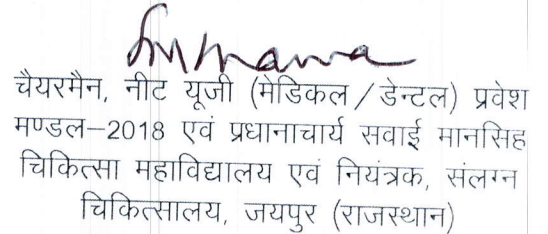 चैयरमैन, नीट यूजी (मेडिकल / डेन्टल) प्रवेश
मण्डल–2018 एवं प्रधानाचार्य सवाई मानसिह
चिकित्सा महाविद्यालय एवं नियंत्रक, संलग्न
चिकित्सालय, जयपुर (राजस्थान)